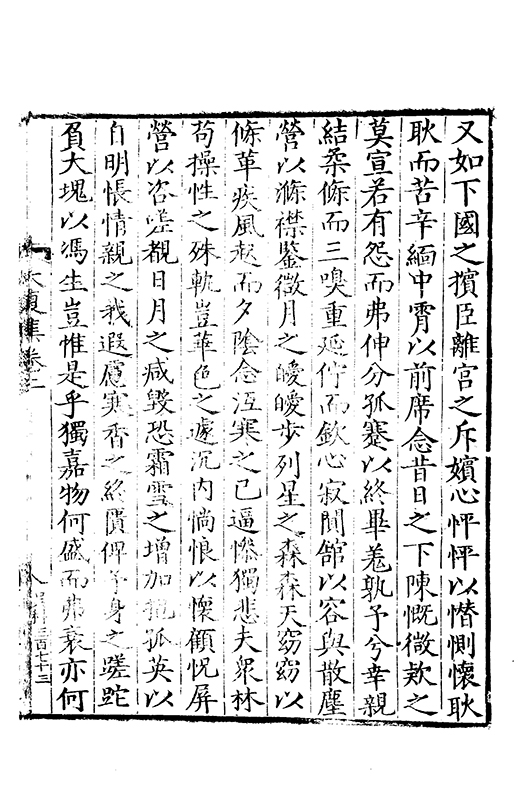 又如下國之擯臣離宮之斥嬪心怦怦以憯惻懷耿
耿而苦辛緬中霄以前席念昔日之下陳慨微欵之
莫宣若有怨而弗伸分孤蹇以終畢羗孰予兮幸親
結柔條而三嗅重延佇而欽心寂閒舘以容與散塵
營以滌襟鑒微月之曖曖步列星之森森天窈窈以
條革疾風起而夕陰念沍寒之已逼慘獨悲夫衆林
苟操性之殊軌豈華色之遽沉内惝悢以懷顧怳屏
營以咨嗟覩日月之虧毀恐霜雪之增加 孤英以
自明悵情親之我遐慮寒香之終隤俾予身之蹉跎
負大塊以馮生豈惟是乎獨嘉物何盛而弗衰亦何
大復集卷二
八
三百七十三